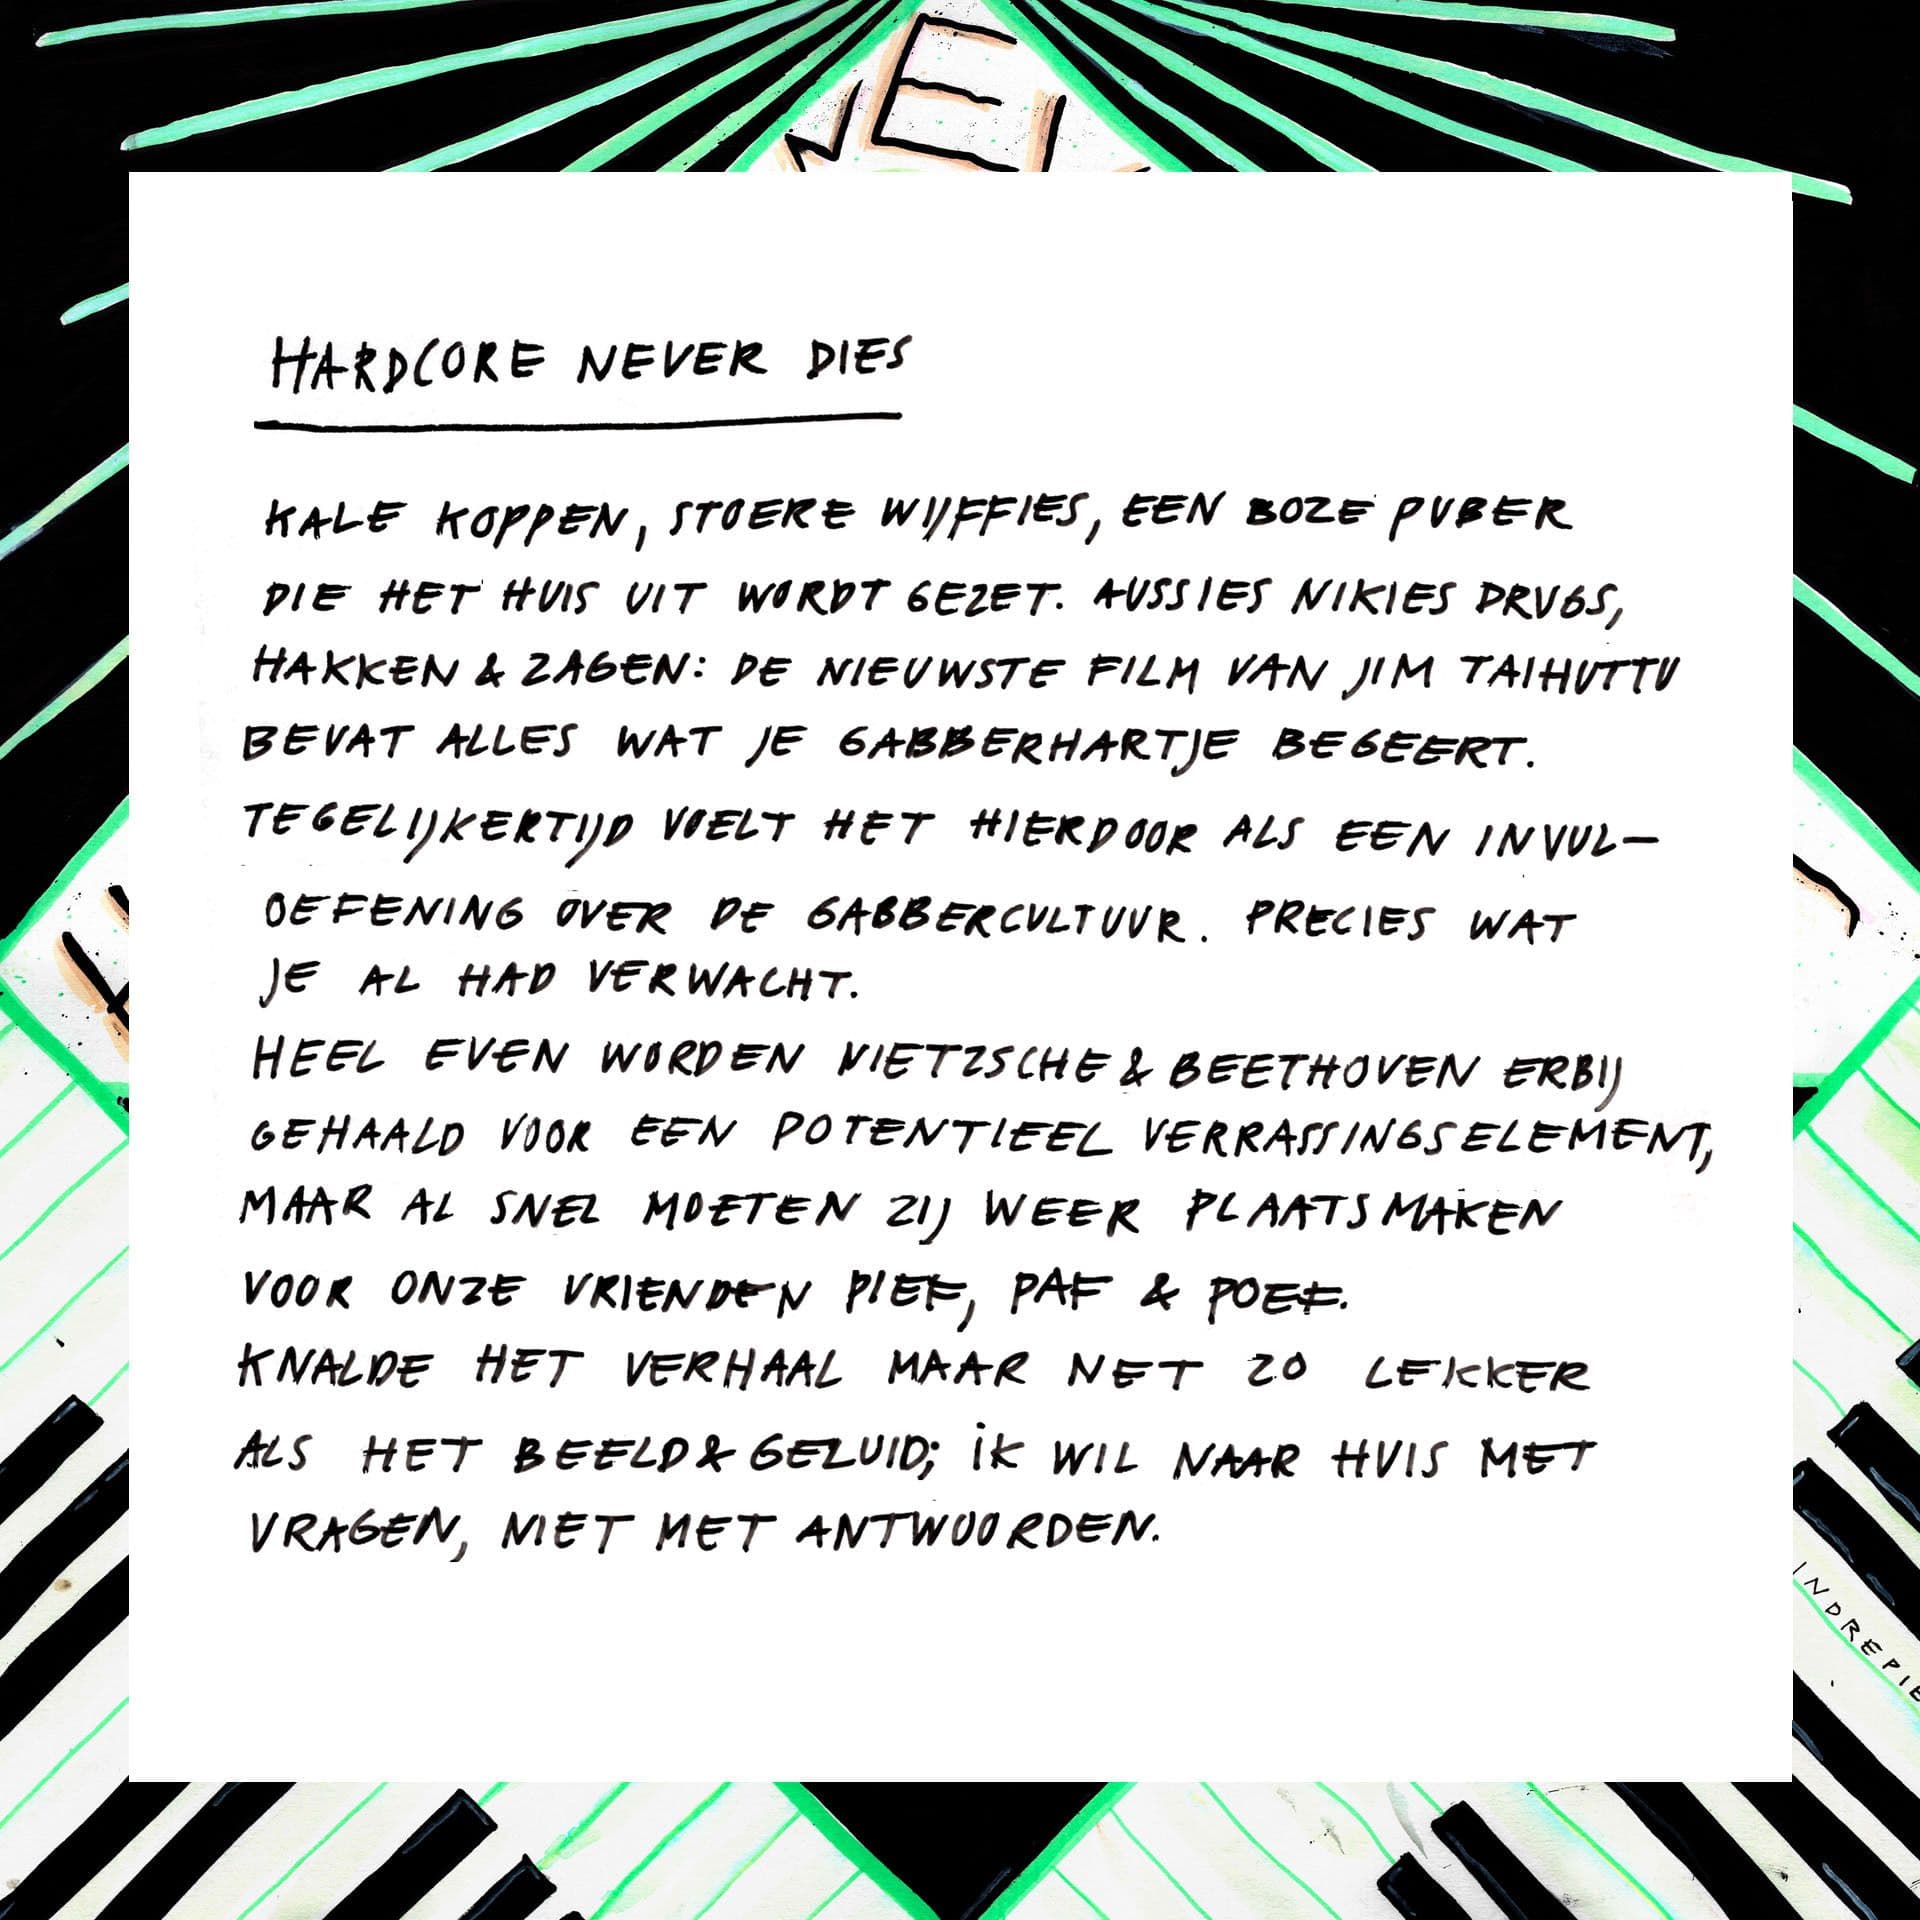 NEV
HARDCORE NEVER DIES
KALE KOPPEN, STOERE WIJFFIES, EEN BOZE PUBER
DIE HET HUIS UIT WORDT GEZET. AUSSIES NIKIES DRUGS,
HAKKEN & ZAGEN: DE NIEUWSTE FILM VAN JIM TAIHUTTU
BEVAT ALLES WAT JE GABBERHARTJE BEGEERT.
TEGELIJKERTIJD VOELT HET HIERDOOR ALS EEN INVUL-
OEFENING OVER DE GABBERCULTUUR. PRECIES WAT
JE AL HAD VERWACHT.
HEEL EVEN WORDEN NIETZSCHE & BEETHOVEN ERBIJ
GEHAALD VOOR EEN POTENTIEEL VERRASSINGSELEMENT,
MAAR AL SNEL MOETEN ZIJ WEER PLAATSMAKEN
VOOR ONZE VRIENDEN PIEF, PAF & POEF.
KNALDE HET VERHAAL MAAR NET ZO LEKKER
ALS HET BEELD & GELUID; iK WIL NAAR HUIS MET
VRAGEN, NIET MET ANTWOORDEN.
INDREPIE